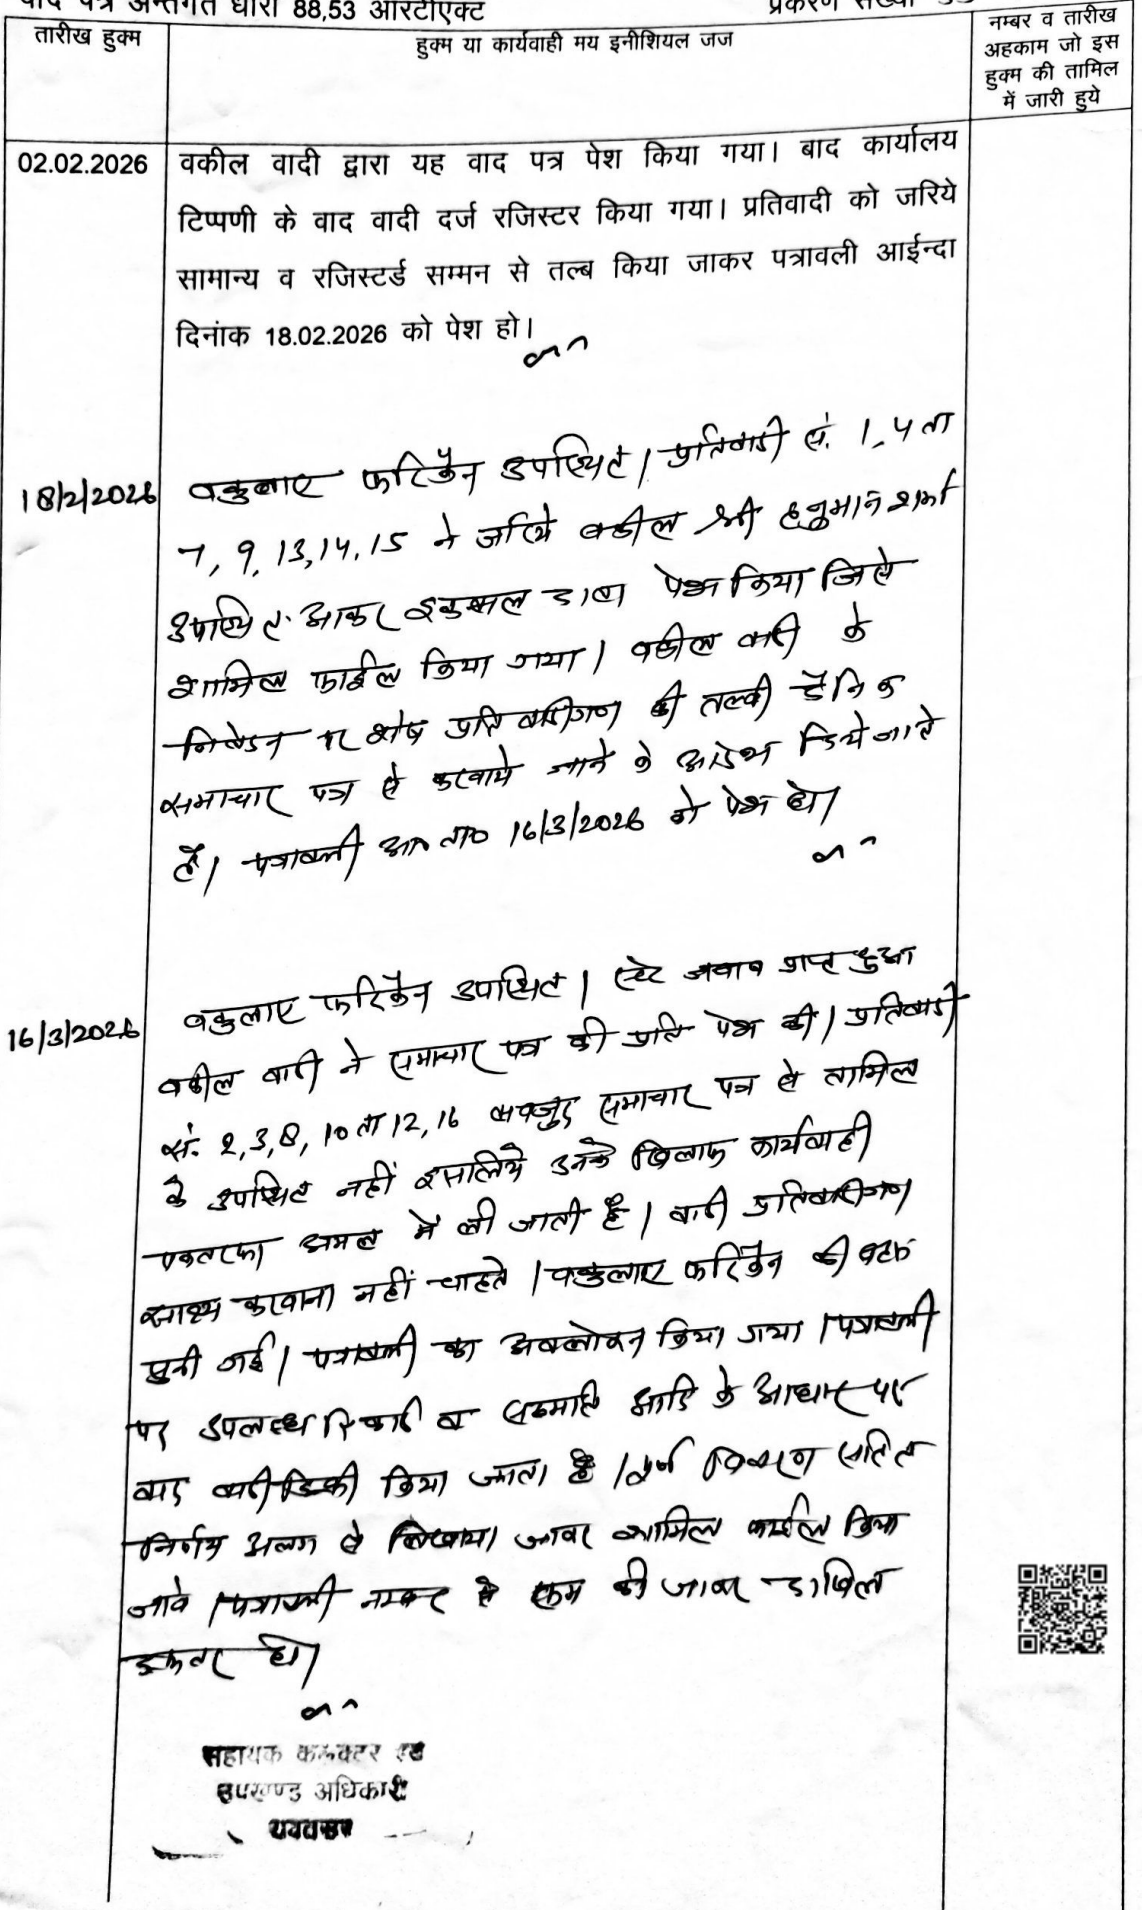 वाद पत्र अन्तर्गत धारा 88,53 आरटीएक्ट
प्रकरण संख्या
तारीख हुक्म
हुक्म या कार्यवाही मय इनीशियल जज
नम्बर व तारीख
अहकाम जो इस
हुक्म की तामिल
में जारी हुये
02.02.2026
वकील वादी द्वारा यह वाद पत्र पेश किया गया। बाद कार्यालय
टिप्पणी के वाद वादी दर्ज रजिस्टर किया गया। प्रतिवादी को जरिये
सामान्य व रजिस्टर्ड सम्मन से तल्ब किया जाकर पत्रावली आईन्दा
दिनांक 18.02.2026 को पेश हो।
18/2/2026
वकुलाए फरिकैन उपस्थित। प्रतिवादी सं. 1, 4 ता
7, 9, 13, 14, 15 ने जरिये वकील श्री हनुमान शर्मा
उपस्थित आकर इकबाल दावा पेश किया जिसे
शामिल फाईल किया गया। वकील वादी के
निवेदन पर शेष प्रतिवादीगण की तल्बी दैनिक
समाचार पत्र से करवाये जाने के आदेश दिये जाते
है। पत्रावली आ० ता० 16/3/2026 को पेश हो।
16/3/2026
वकुलाए फरिकैन उपस्थित। स्टे जवाब प्राप्त हुआ
वकील वादी ने समाचार पत्र की प्रति पेश की। प्रतिवादी
सं. 2, 3, 8, 10 ता 12, 16 बावजुद समाचार पत्र से तामिल
के उपस्थित नहीं इसलिये उनके खिलाफ कार्यवाही
एकतरफा अमल में ली जाती है। वादी प्रतिवादीगण
साक्ष्य करवाना नहीं चाहते। वकुलाए फरिकैन की बहस
सुनी गई। पत्रावली का अवलोकन किया गया। पत्रावली
पर उपलब्ध रिकार्ड व सहमति आदि के आधार पर
वाद वादी डिक्री किया जाता है। पूर्ण विवरण सहित
निर्णय अलग से लिखाया जाकर शामिल फाईल किया
जावे। पत्रावली नम्बर से कम की जाकर दाखिल
दफ्तर हो।
सहायक कलक्टर एवं
उपखण्ड अधिकारी